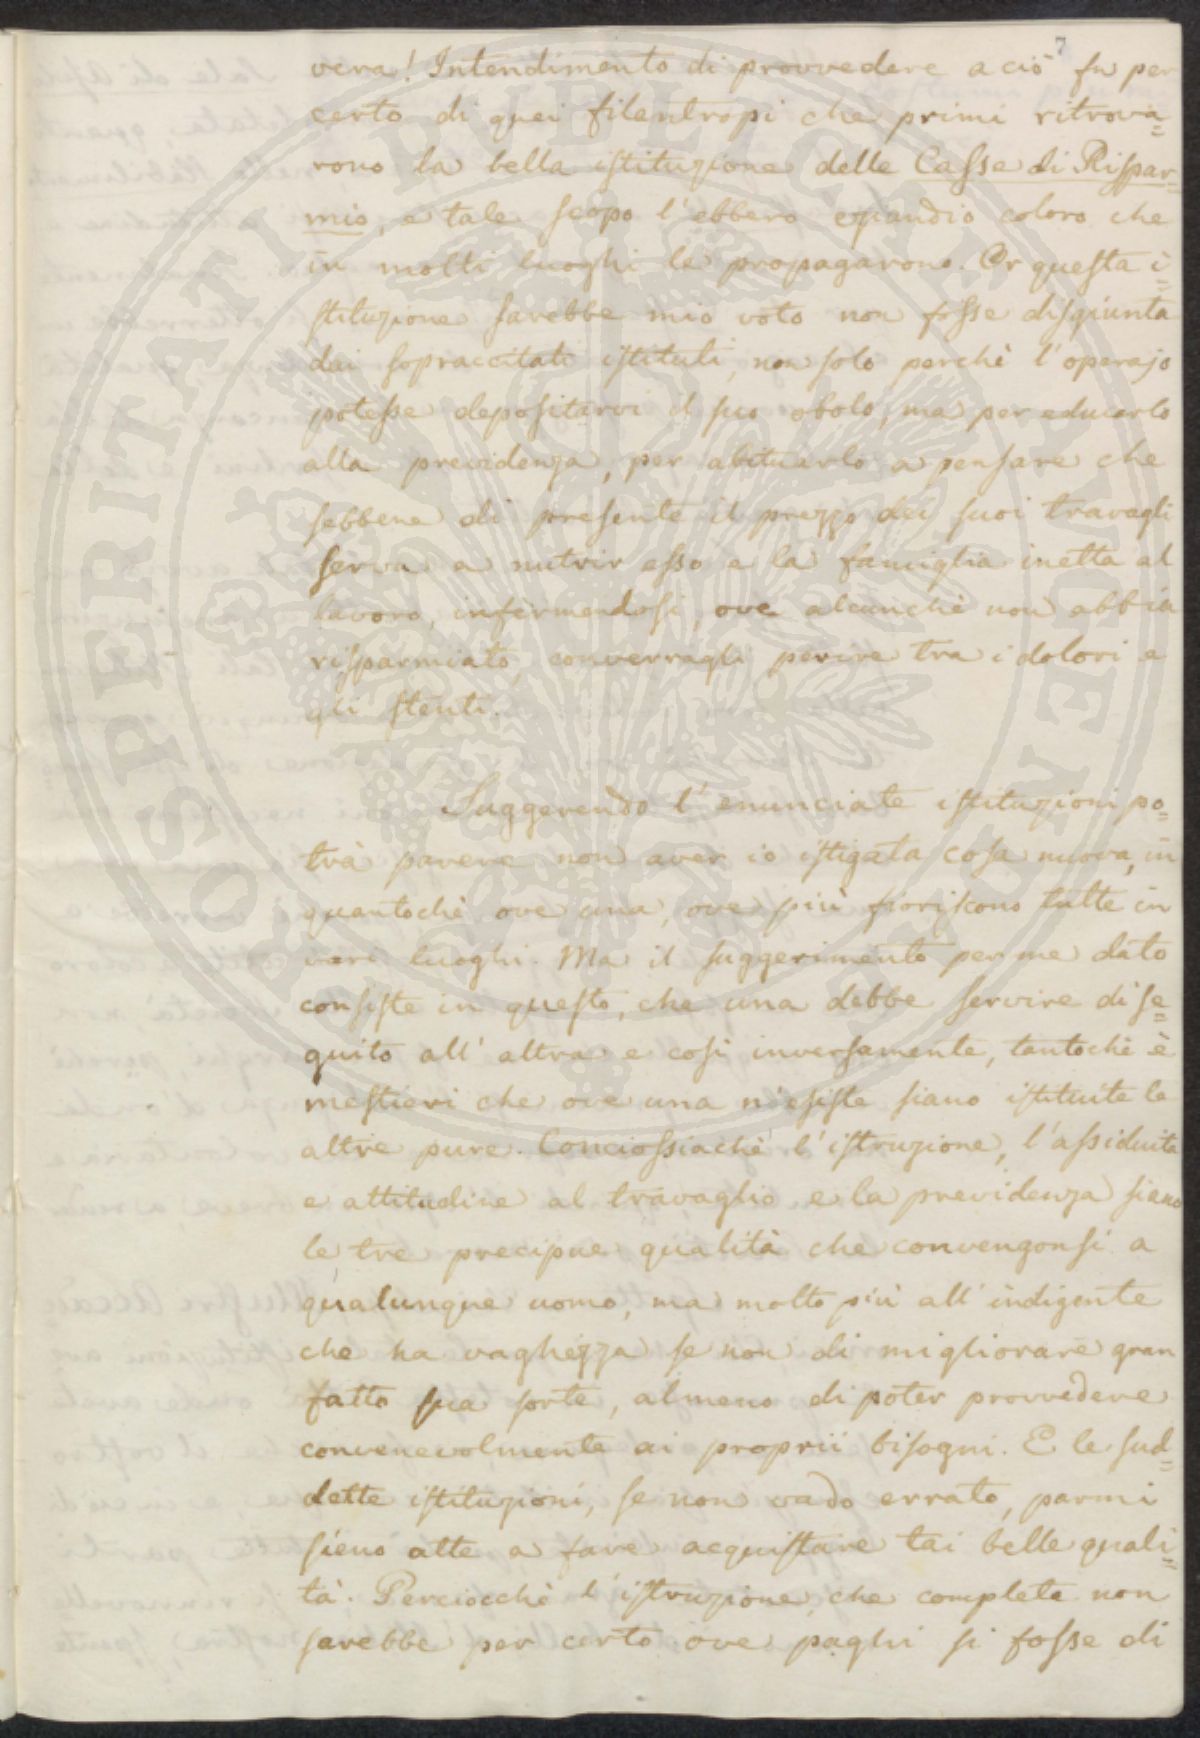 7
vera! Intendimento di provvedere a ciò fu per
certo di quei filantropi che primi ritrova=
rono la bella istituzione delle Casse di Rispar=
mio, e tale scopo l'ebbero eziandio coloro che
in molti luoghi le propagarono. Or questa i=
stituzione sarebbe mio voto non fosse disgiunta
dai sopraccitati istituti, non solo perchè l'operajo
potesse depositarvi il suo obolo, ma per educarlo
alla previdenza, per abituarlo a pensare che
sebbene di presente il prezzo dei suoi travagli
serva a nutrir esso e la famiglia inetta al
lavoro, infermandosi, ove alcunchè non abbia
risparmiato, converragli perire tra i dolori e
gli stenti.
Suggerendo l'enunciate istituzioni po=
trà parere non aver io istigata cosa nuova, in
quantochè ove una, ove più fioriscono tutte in
vari luoghi. Ma il suggerimento per me dato
consiste in questo, che una debbe servire di se=
guito all'altra e così inversamente, tantochè è
mestieri che ove una n'esiste siano istituite le
altre pure. Conciossiachè l'istruzione, l'assiduità
e attitudine al travaglio e la previdenza siano
le tre precipue qualità che convengonsi a
qualunque uomo, ma molto più all'indigente
che ha vaghezza se non di migliorare gran
fatto sua sorte, almeno di poter provvedere
convenevolmente ai proprii bisogni. E le sud=
dette istituzioni, se non vado errato, parmi
sieno atte a fare acquistare tai belle quali=
tà. Perciocchè l'istruzione, che completa non
sarebbe per certo ove paghi si fosse di
PROSPERITATI PUBLICAE AUGENDAE